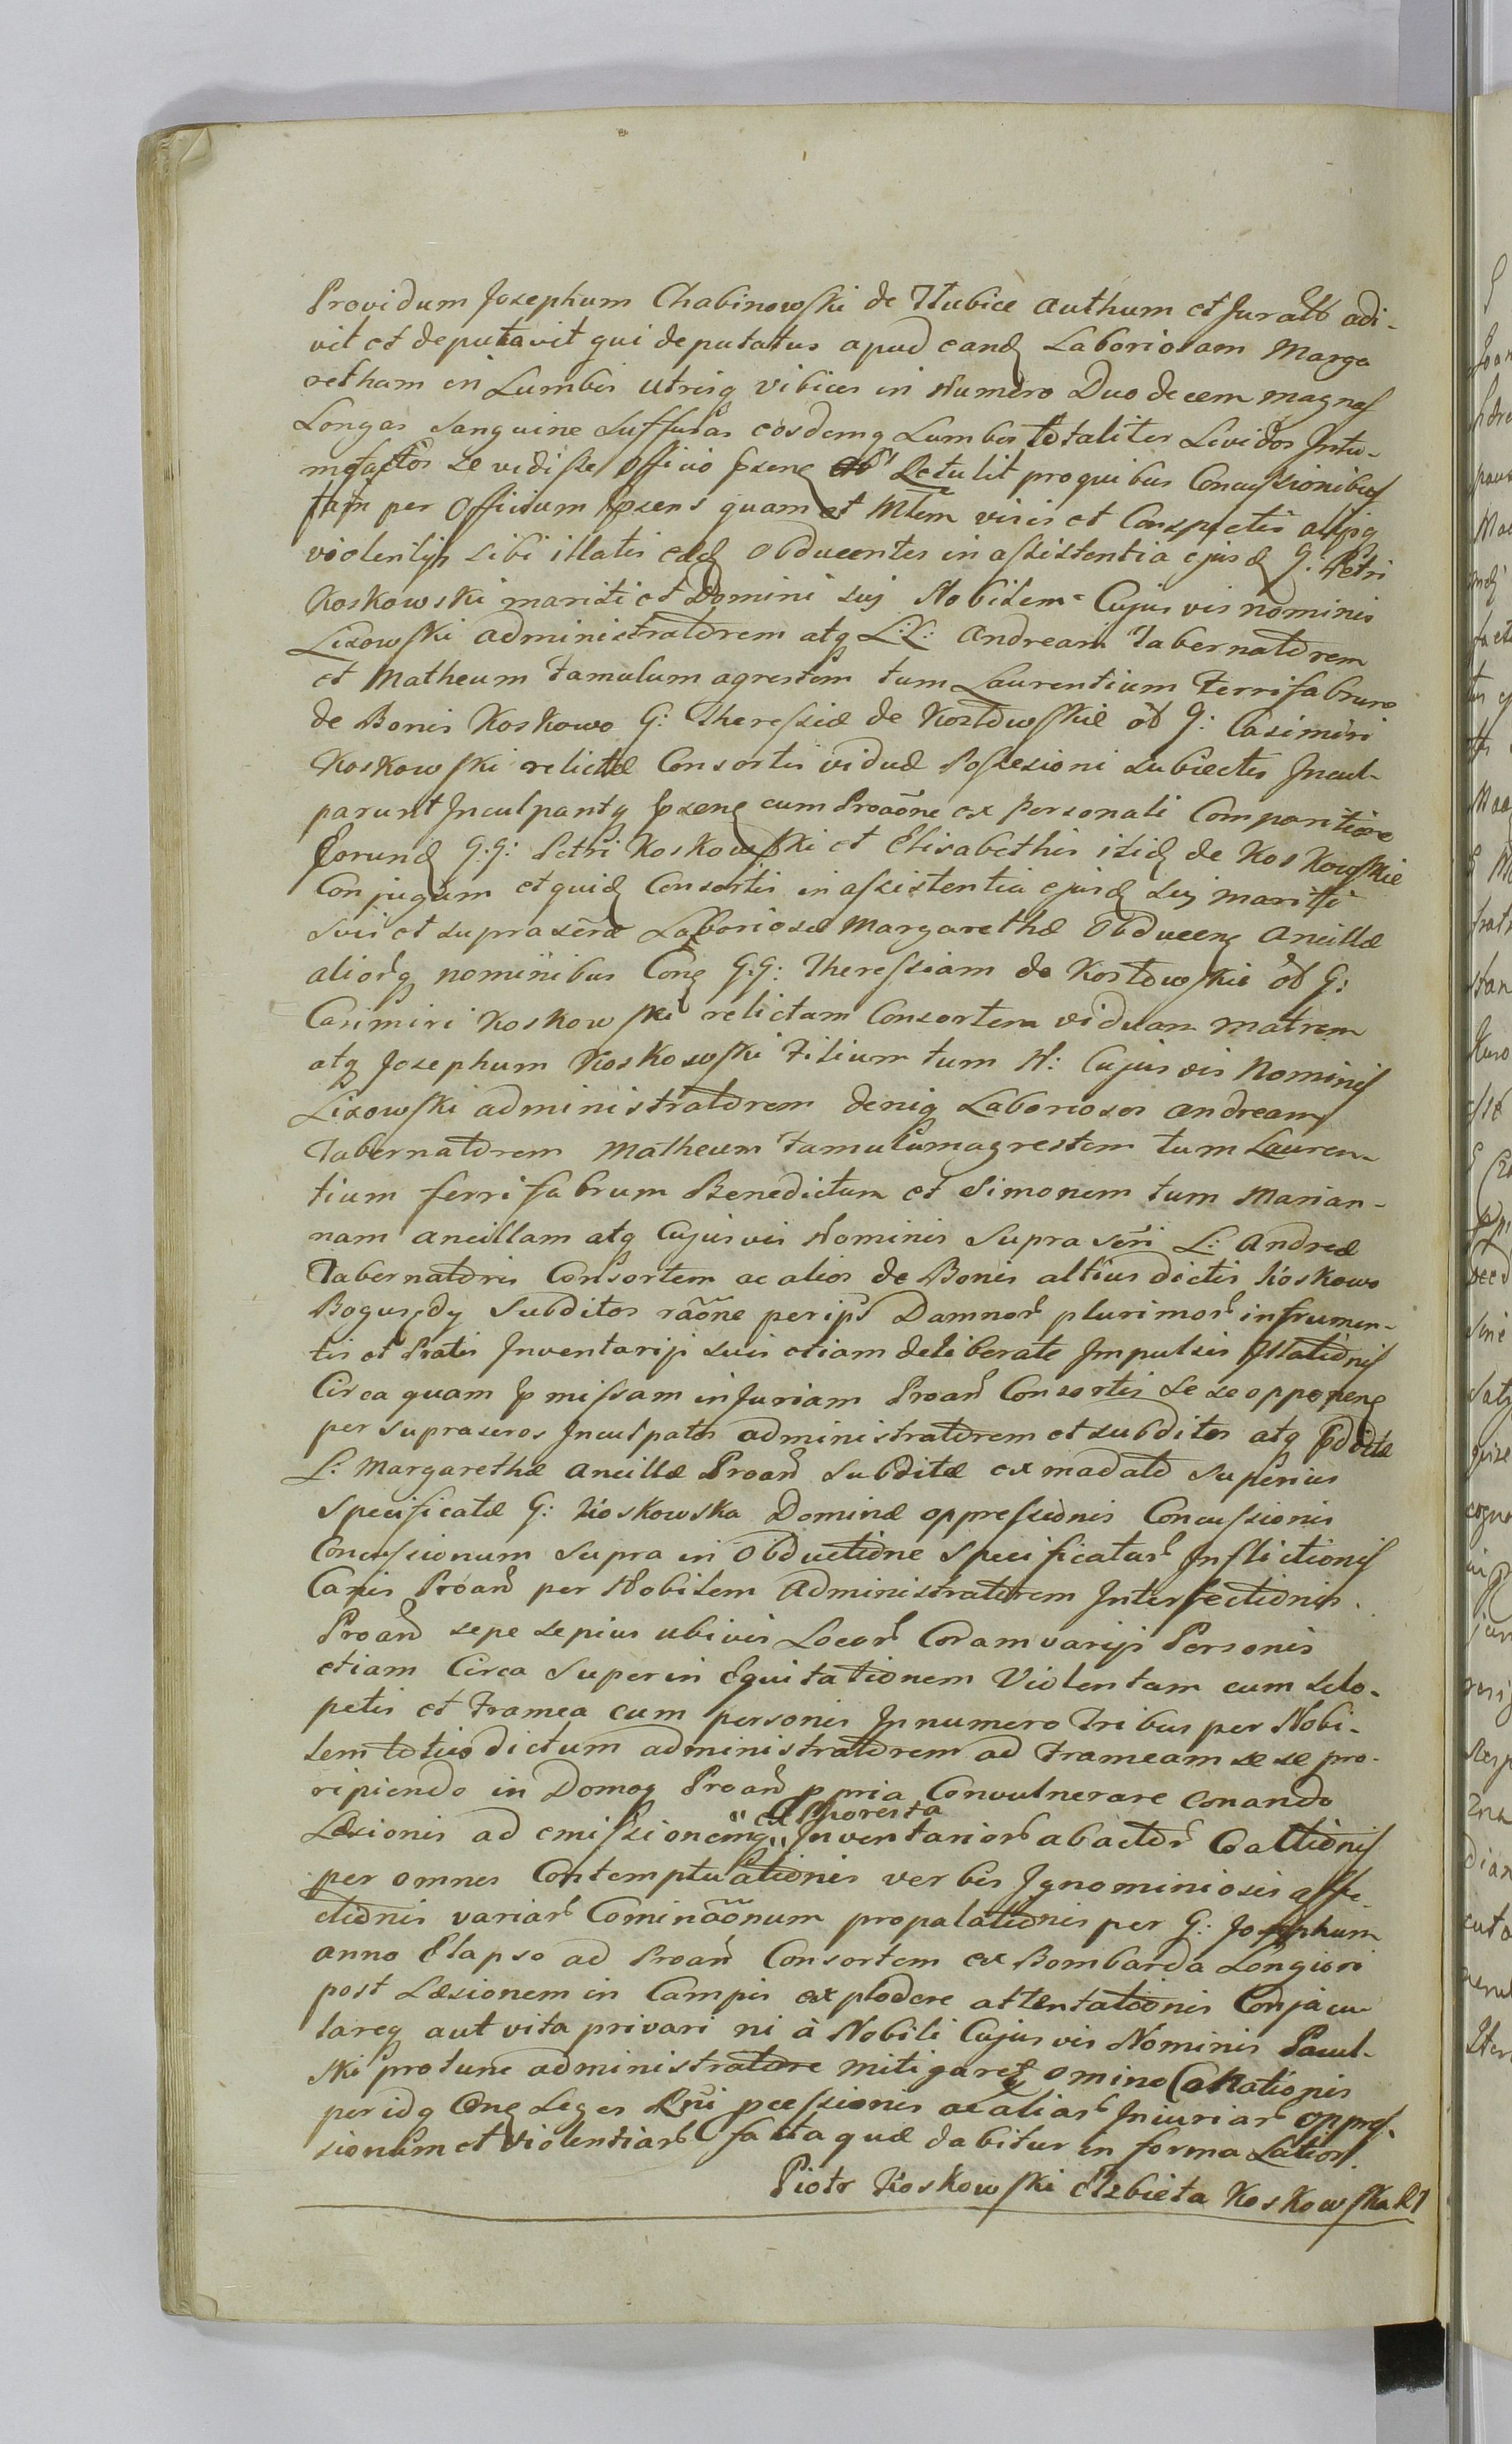 Providum Josephum Chabinowski de Hubice authum et Juratb adi-
vit et deputavit qui deputatus apud eandʒ Laboriosam Marga
retham in Lumbis utrisq vibices in Numero Duodecem magnas
Longas Sanguine Suffusas eosdemq Lumbos totaliter Lividos Intu-
mefactos se vidisse Officio pseng Retulit pro quibus Concussionibus
tam per Officium psens quam et Mtem visis et Conspectis aliisq
violentijs sibi illatis eadʒ Obducentes in assistentia ejusdʒ G: Petri
Koskowski mariti et Domini sui Nobilem Cujusvis nominis
Lisowski administratorem atq L:L: Andream Tabernatorem
et Matheum Famulum agrestem tum Laurentium Ferrifabrum
de Bonis Koskowo G: Theressiæ de Kozlowskie ol G: Casimiri
Koskowski relictæ Consortis viduæ Possesioni subiectis Incul-
parunt Inculpantq pseng cum Proaõne ex Personali Comparitione
Eorundʒ G:G: Petri Koskowski et Elisabethis itidʒ de Koskowskie
Conjugum et quidʒ Consortis in assistentia ejusdʒ sui mariti
Sui et suprascrã Laboriosæ Margarethæ Obduceng Ancillæ
aliorq nominibus Cong G:G: Theressiam de Kozlowskie ol G:
Casimiri Koskowski relictam Consortem viduam Matrem
atq Josephum Koskowski Filium tum N: Cujusvis Nominis
Lisowski administratorem deniq Laboriosos Andream
Tabernatorem Matheum Famulum agrestem tum Lauren-
tium ferrifabrum Benedictum et Simonem tum Marian-
nam ancillam atq Cujusvis Nominis Supra scri L: Andreæ
Tabernatoris Consortem ac alios de Bonis altius dictis Koskowo
Bogusędy Subditos raõne per ips Damnor plurimor in frumen-
tis et Pratis Inventarijs suis etiam deliberate Impulsis Illationis
Circa quam pmissam injuriam Proan Consortis sese opponeng
per suprascros Inculpatos administratorem et subditos atq pdictæ
L: Margarethæ Ancillæ Proan Subditæ ex madato Superius
Specificatæ G: Koskowska Dominæ oppressionis Concussionis
Concussionum supra in Obductione Specificatar Inflictionis
Canis Proan per Nobilem Administratorem Interfectionis.
Proan sepe sepius ubivis Locor Coram varijs Personis
etiam Circa Superin Equitationem Violentam cum sclo-
petis et Framea cum personis In numero Tribus per Nobi-
lem toties dictum administratorem ad Frameam sese pro-
ripiendo in Domoq Proan ppria Convulnerare conando
Læsionis ad emissionemq Inventarior abactor Coactionis
per omnes Contemptuationis verbis Ignominiosis affe-
ctionis variar Cominaõnum propalationis per G: Josephum
anno Elapso ad Proan Consortem ex Bombarda Longiori
post Læsionem in Campis explodere attentationis Conjacu-
lareq aut vita privari ni à Nobili Cujusvis Nominis Pawl-
ski protunc administratore mitigaret omino
per idq Leges Rni pcessionis ac aliar Iniuriar Oppres-
sionum et Violentiar facta quæ dabitur in forma Latiori.
Piotr Koskowski Elzbieta Koskowska